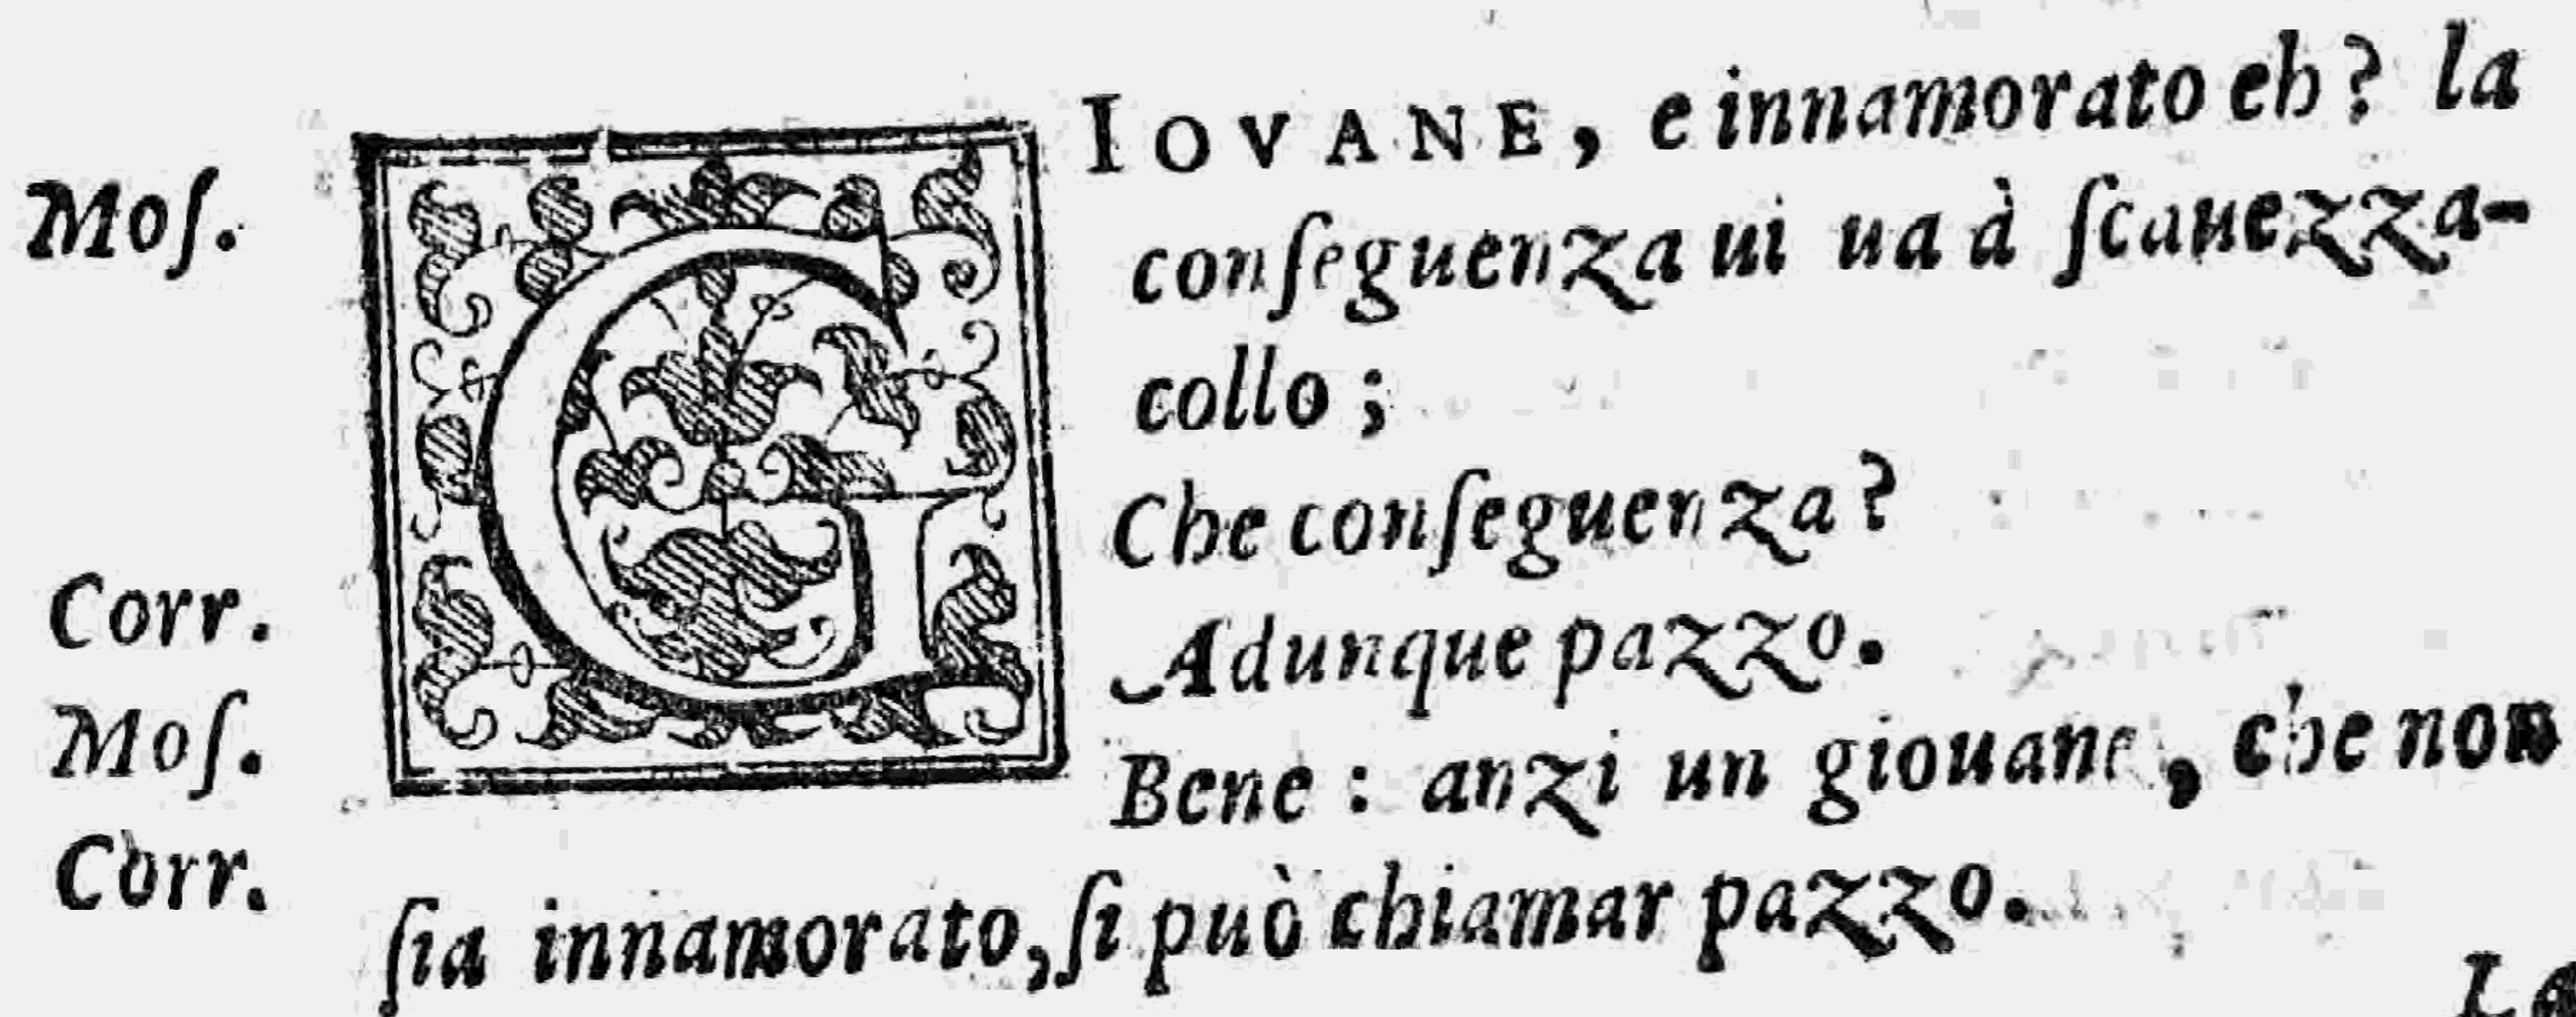 Moſ. GIOVANE, e innamorato eh? la
conſeguenza ui ua à ſcauezza-
collo;
Corr. Che conſeguenza?
Moſ. Adunque pazzo.
Corr. Bene: anzi un giouane, che non
ſia innamorato, ſi può chiamar pazzo.
La